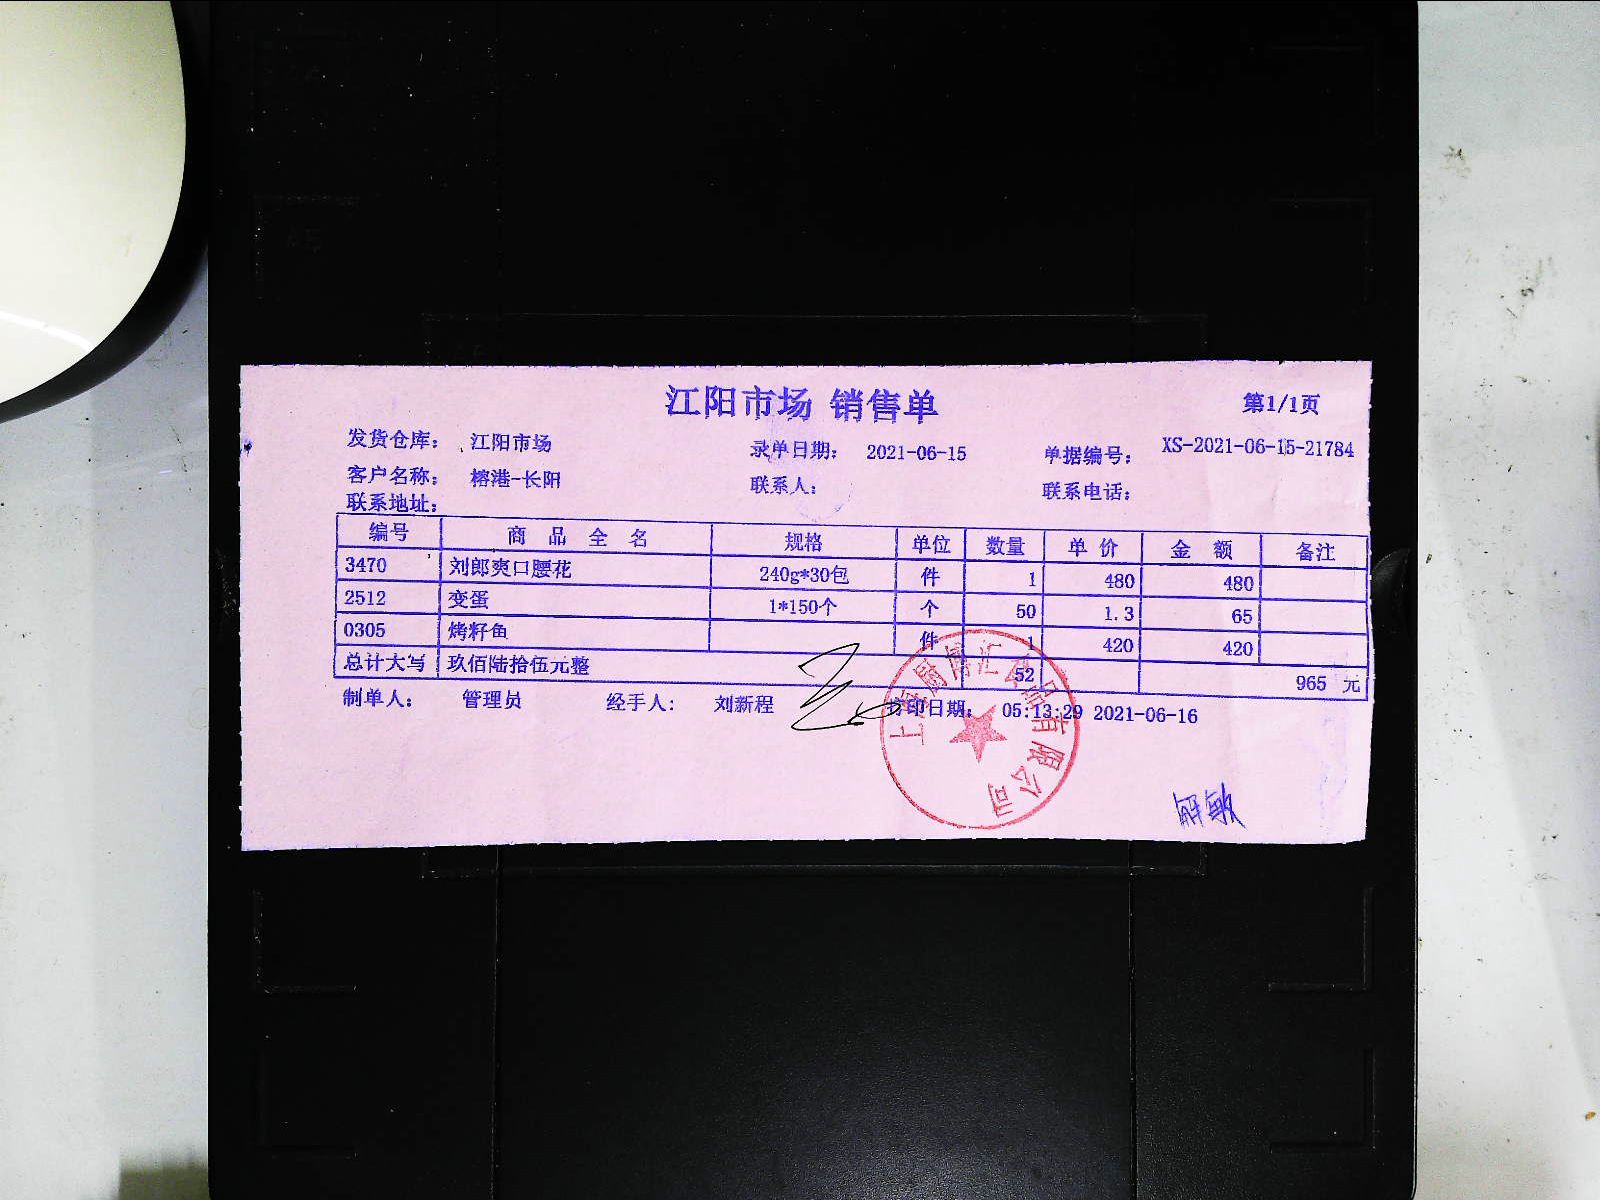 江阳市场 销售单
第1/1页
发货仓库： 江阳市场 录单日期： 2021-06-15 单据编号： XS-2021-06-15-21784
客户名称： 榕港-长阳 联系人： 联系电话：
联系地址：
编号 商品全名 规格 单位 数量 单价 金额 备注
3470 刘郎爽口腰花 240g*30包 件 1 480 480
2512 变蛋 1*150个 个 50 1.3 65
0305 烤籽鱼 件 1 420 420
总计大写 玖佰陆拾伍元整 52 965 元
制单人： 管理员 经手人： 刘新程 打印日期： 05:13:29 2021-06-16
上海厨博汇食品有限公司